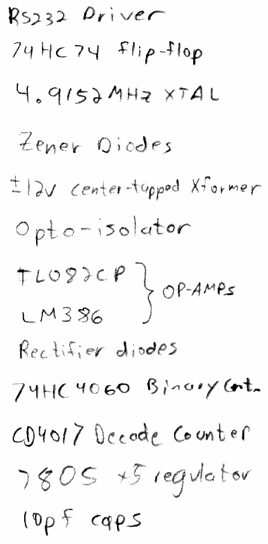 RS232 Driver
74HC74 flip-flop
4.9152MHz XTAL
Zener Diodes
±12v center-tapped Xformer
Opto-isolator
TL082CP
LM386
OP-AMPs
Rectifier diodes
74HC4060 Binary Cnt.
CD4017 Decade Counter
7805 +5 regulator
10pf caps